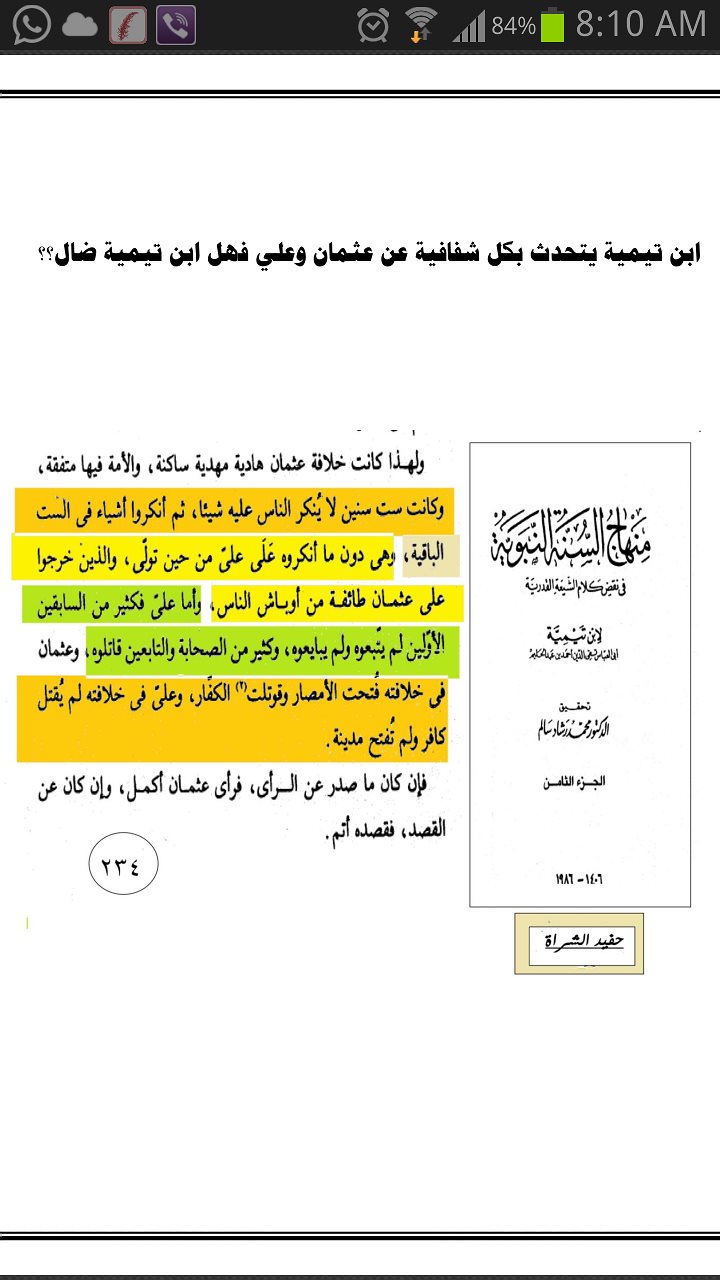 84% 8:10 AM
ابن تيمية يتحدث بكل شفافية عن عثمان وعلي فهل ابن تيمية ضال؟؟
ولهذا كانت خلافة عثمان هادية مهدية ساكنة، والأمة فيها متفقة،
وكانت ست سنين لا يُنكر الناس عليه شيئا، ثم أنكروا أشياء فى الست
الباقية، وهى دون ما أنكروه عَلَى علىّ من حين تولّى، والذين خرجوا
على عثمان طائفة من أوباش الناس، وأما علىّ فكثير من السابقين
الأوّلين لم يتّبعوه ولم يبايعوه، وكثير من الصحابة والتابعين قاتلوه، وعثمان
فى خلافته فُتحت الأمصار وقوتلت(٢) الكفّار، وعلىّ فى خلافته لم يُقتل
كافر ولم تُفتح مدينة.
فإن كان ما صدر عن الرأى، فرأى عثمان أكمل، وإن كان عن
القصد، فقصده أتم.
٢٣٤
منهاج السنة النبوية
فى نقض كلام الشيعة القدرية
لابن تيمية
أبى العباس تقى الدين أحمد بن عبد الحليم
تحقيق
الدكتور محمد رشاد سالم
الجزء الثامن
١٤٠٦ - ١٩٨٦
حفيد الشراة